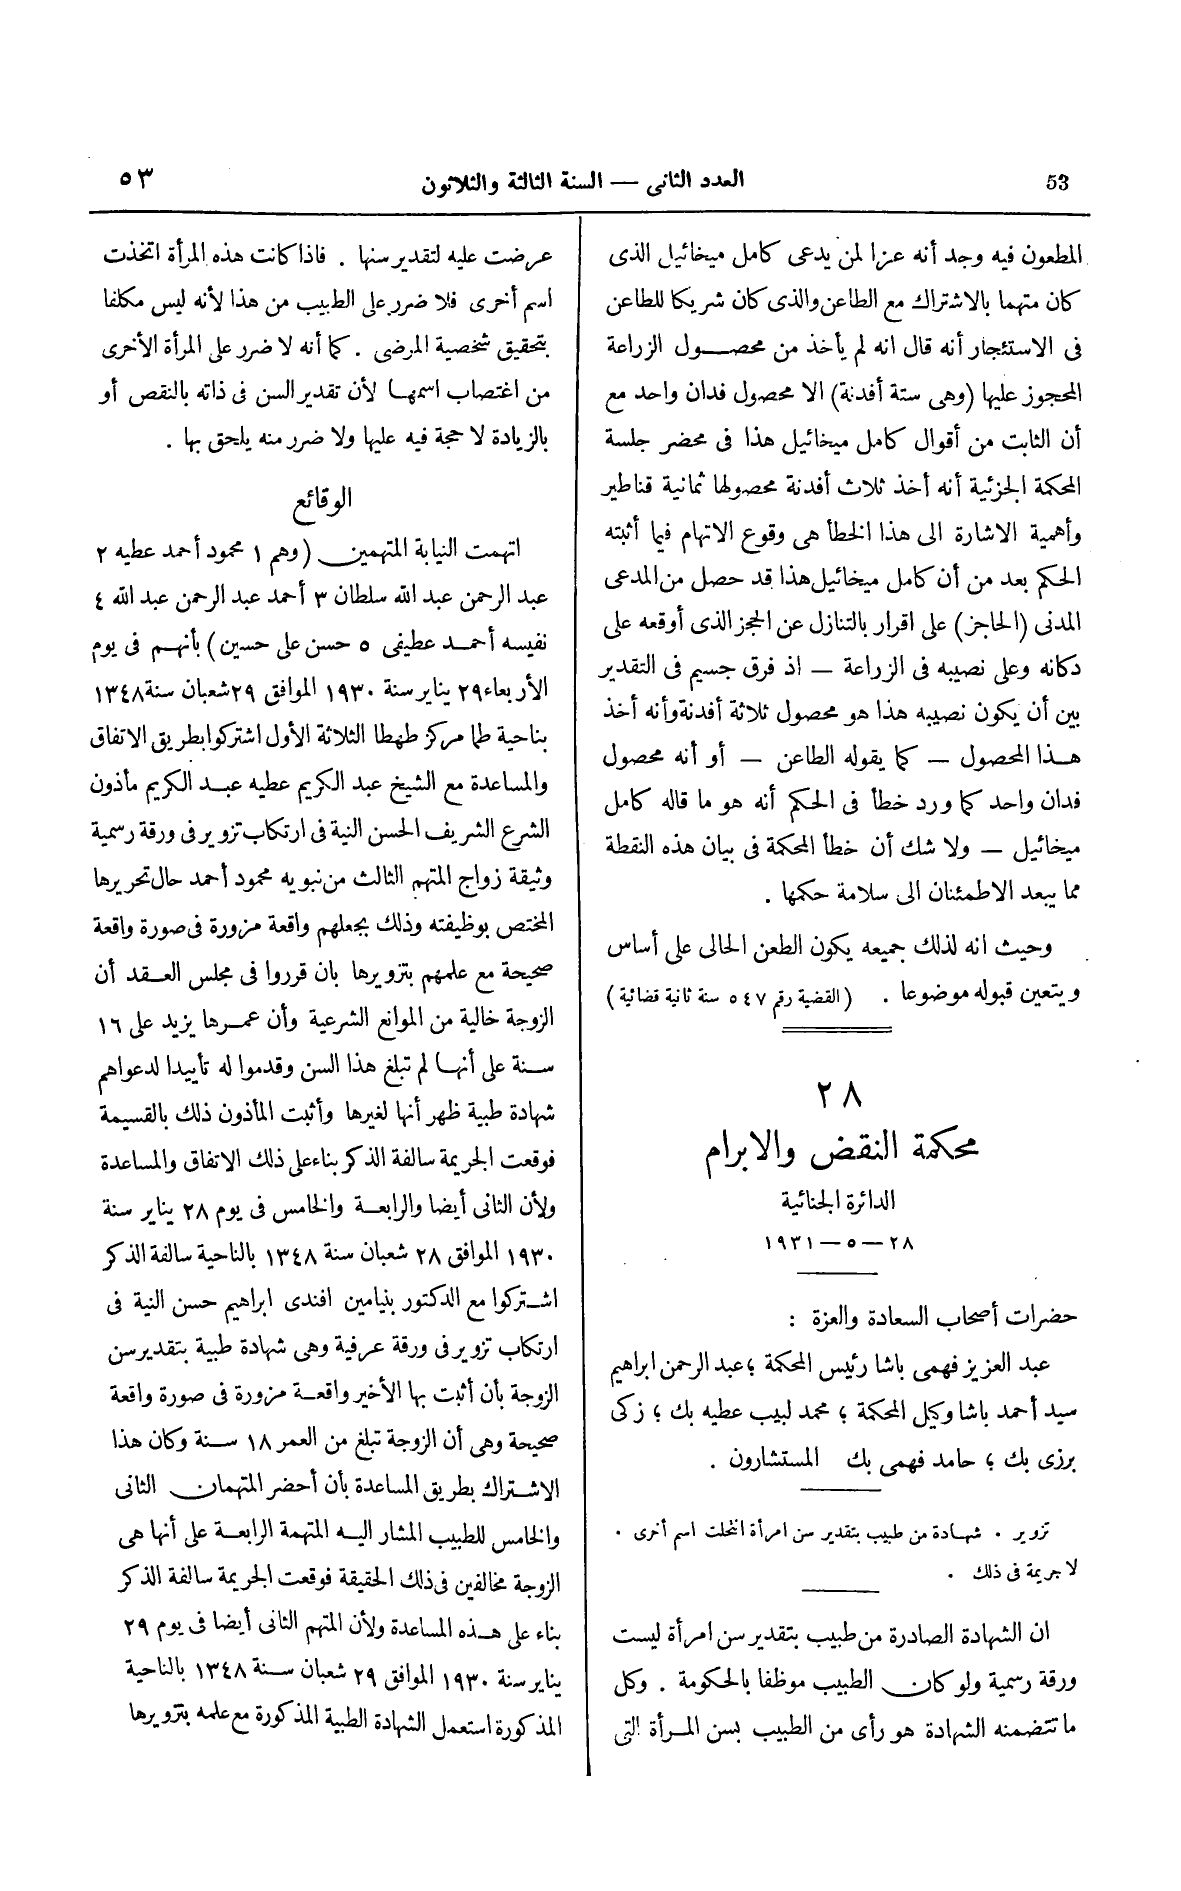 53
العدد الثانى — السنة الثالثة والثلاثون
٥٣
المطعون فيه وجد أنه عزا لمن يدعى كامل ميخائيل الذى
كان متهما بالاشتراك مع الطاعن والذى كان شريكا للطاعن
فى الاستئجار أنه قال انه لم يأخذ من محصول الزراعة
المحجوز عليها (وهى ستة أفدنة) الا محصول فدان واحد مع
أن الثابت من أقوال كامل ميخائيل هذا فى محضر جلسة
المحكمة الجزئية أنه أخذ ثلاث أفدنة محصولها ثمانية قناطير
وأهمية الاشارة الى هذا الخطأ هى وقوع الاتهام فيما أثبته
الحكم بعد من أن كامل ميخائيل هذا قد حصل من المدعى
المدنى (الحاجز) على اقرار بالتنازل عن الحجز الذى أوقعه على
دكانه وعلى نصيبه فى الزراعة — اذ فرق جسيم فى التقدير
بين أن يكون نصيبه هذا هو محصول ثلاثة أفدنة وأنه أخذ
هذا المحصول — كما يقوله الطاعن — أو أنه محصول
فدان واحد كما ورد خطأ فى الحكم أنه هو ما قاله كامل
ميخائيل — ولا شك أن خطأ المحكمة فى بيان هذه النقطة
مما يبعد الاطمئنان الى سلامة حكمها .
وحيث انه لذلك جميعه يكون الطعن الحالى على أساس
ويتعين قبوله موضوعا . (القضية رقم ٥٤٧ سنة ثانية قضائية)
٢٨
محكمة النقض والابرام
الدائرة الجنائية
٢٨ — ٥ — ١٩٣١
حضرات أصحاب السعادة والعزة :
عبد العزيز فهمى باشا رئيس المحكمة ؛ عبد الرحمن ابراهيم
سيد أحمد باشا وكيل المحكمة ؛ محمد لبيب عطيه بك ؛ زكى
برزى بك ؛ حامد فهمى بك المستشارون .
تزوير . شهادة من طبيب بتقدير سن امرأة انتحلت اسم أخرى .
لا جريمة فى ذلك .
ان الشهادة الصادرة من طبيب بتقدير سن امرأة ليست
ورقة رسمية ولو كان الطبيب موظفا بالحكومة . وكل
ما تتضمنه الشهادة هو رأى من الطبيب بسن المرأة التى
عرضت عليه لتقدير سنها . فاذا كانت هذه المرأة اتخذت
اسم أخرى فلا ضرر على الطبيب من هذا لأنه ليس مكلفا
بتحقيق شخصية المرضى . كما أنه لا ضرر على المرأة الأخرى
من اغتصاب اسمها لأن تقدير السن فى ذاته بالنقص أو
بالزيادة لا حجة فيه عليها ولا ضرر منه يلحق بها .
الوقائع
اتهمت النيابة المتهمين (وهم ١ محمود أحمد عطيه ٢
عبد الرحمن عبد الله سلطان ٣ أحمد عبد الرحمن عبد الله ٤
نفيسه أحمد عطيفى ٥ حسن على حسين) بأنهم فى يوم
الأربعاء ٢٩ يناير سنة ١٩٣٠ الموافق ٢٩ شعبان سنة ١٣٤٨
بناحية طما مركز طهطا الثلاثة الأول اشتركوا بطريق الاتفاق
والمساعدة مع الشيخ عبد الكريم عطيه عبد الكريم مأذون
الشرع الشريف الحسن النية فى ارتكاب تزوير فى ورقة رسمية
وثيقة زواج المتهم الثالث من نبويه محمود أحمد حال تحريرها
المختص بوظيفته وذلك بجعلهم واقعة مزورة فى صورة واقعة
صحيحة مع علمهم بتزويرها بان قرروا فى مجلس العقد أن
الزوجة خالية من الموانع الشرعية وأن عمرها يزيد على ١٦
سنة على أنها لم تبلغ هذا السن وقدموا له تأييدا لدعواهم
شهادة طبية ظهر أنها لغيرها وأثبت المأذون ذلك بالقسيمة
فوقعت الجريمة سالفة الذكر بناء على ذلك الاتفاق والمساعدة
ولأن الثانى أيضا والرابعة والخامس فى يوم ٢٨ يناير سنة
١٩٣٠ الموافق ٢٨ شعبان سنة ١٣٤٨ بالناحية سالفة الذكر
اشتركوا مع الدكتور بنيامين افندى ابراهيم حسن النية فى
ارتكاب تزوير فى ورقة عرفية وهى شهادة طبية بتقدير سن
الزوجة بأن أثبت بها الأخير واقعة مزورة فى صورة واقعة
صحيحة وهى أن الزوجة تبلغ من العمر ١٨ سنة وكان هذا
الاشتراك بطريق المساعدة بأن أحضر المتهمان الثانى
والخامس للطبيب المشار اليه المتهمة الرابعة على أنها هى
الزوجة مخالفين فى ذلك الحقيقة فوقعت الجريمة سالفة الذكر
بناء على هذه المساعدة ولأن المتهم الثانى أيضا فى يوم ٢٩
يناير سنة ١٩٣٠ الموافق ٢٩ شعبان سنة ١٣٤٨ بالناحية
المذكورة استعمل الشهادة الطبية المذكورة مع علمه بتزويرها